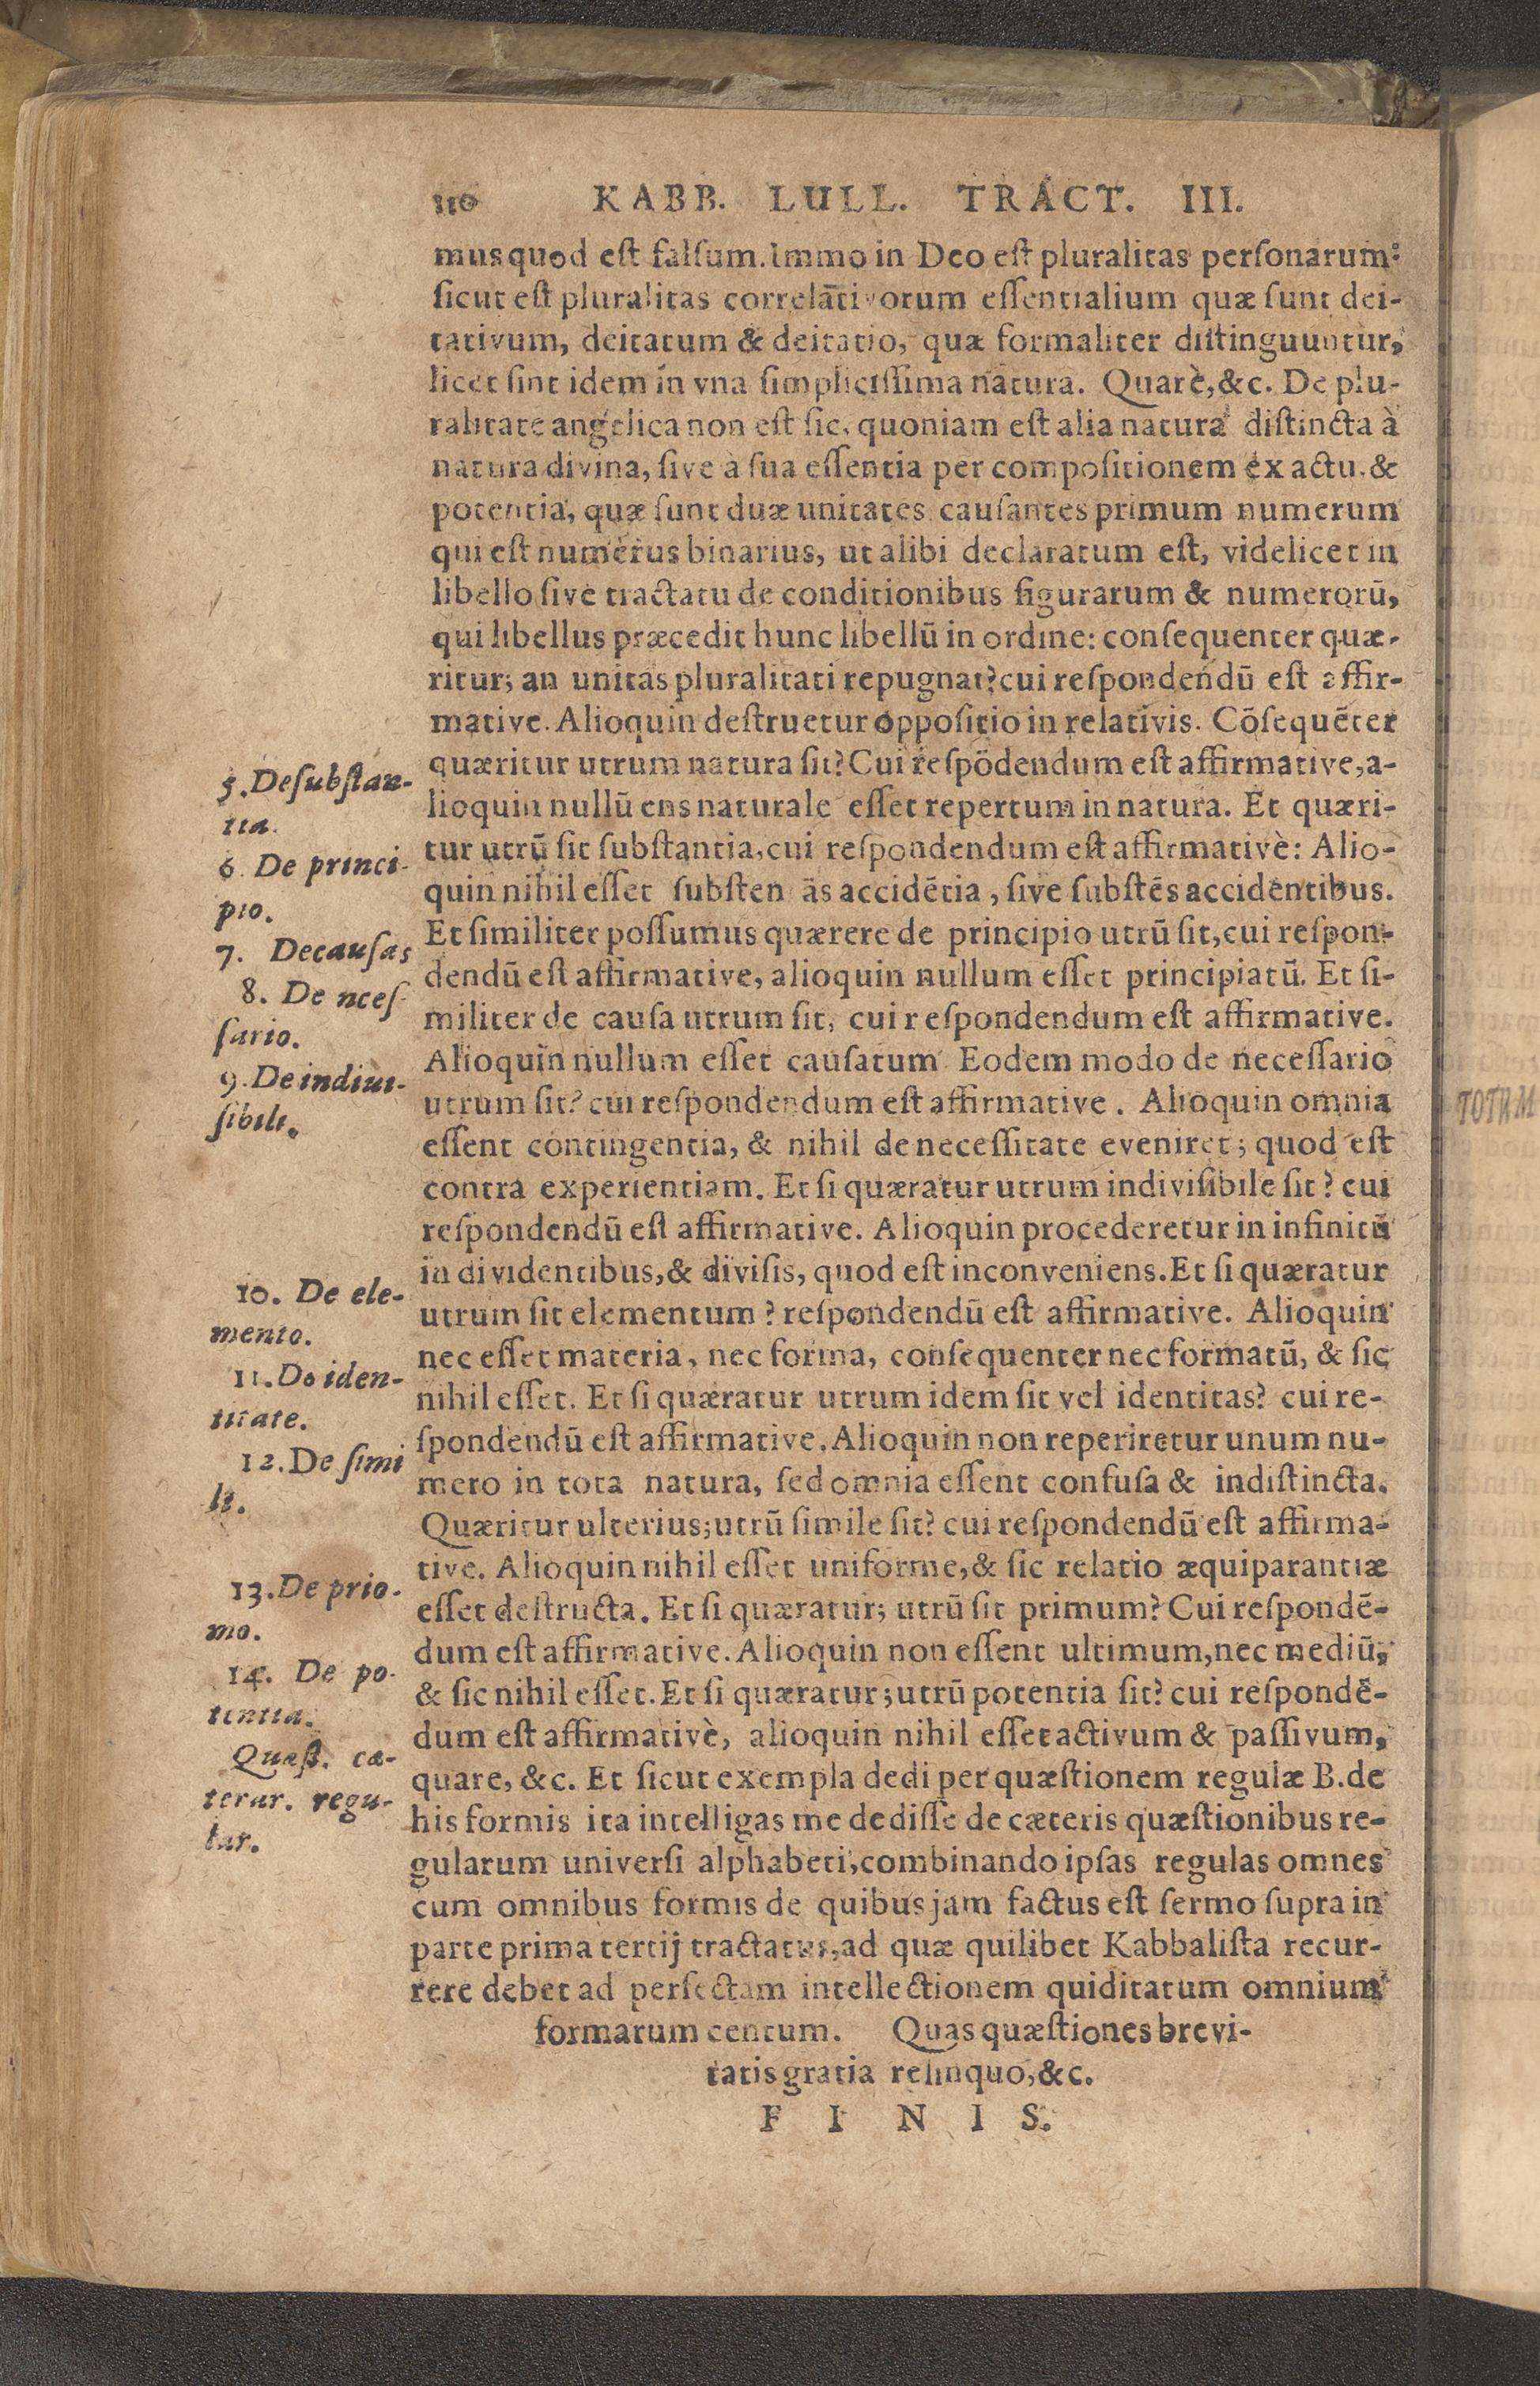 110 KABB. LULL. TRACT. III.
mus quod est falsum. Immo in Deo est pluralitas personarum:
sicut est pluralitas correlātivorum essentialium quæ sunt dei-
tativum, deitatum & deitatio, quæ formaliter distinguuntur,
licet sint idem in vna simplicissima natura. Quarè, &c. De plu-
ralitate angelica non est sic, quoniam est alia natura distincta à
natura divina, sive à sua essentia per compositionem ex actu. &
potentia, quæ sunt duæ unitates causantes primum numerum
qui est numerus binarius, ut alibi declaratum est, videlicet in
libello sive tractatu de conditionibus figurarum & numerorū,
qui libellus præcedit hunc libellū in ordine: consequenter quæ-
ritur; an unitas pluralitati repugnat? cui respondendū est affir-
mative. Alioquin destruetur oppositio in relativis. Cōsequēter
quæritur utrum natura sit? Cui respōdendum est affirmative, a-
lioquin nullū ens naturale esset repertum in natura. Et quæri-
tur utrū sit substantia, cui respondendum est affirmativè: Alio-
quin nihil esset substen ās accidētia, sive substēs accidentibus.
Et similiter possumus quærere de principio utrū sit, cui respon-
dendū est affirmative, alioquin nullum esset principiatū. Et si-
militer de causa utrum sit, cui respondendum est affirmative.
Alioquin nullum esset causatum Eodem modo de necessario
utrum sit? cui respondendum est affirmative. Alioquin omnia
essent contingentia, & nihil de necessitate eveniret; quod est
contra experientiam. Et si quæratur utrum indivisibile sit? cui
respondendū est affirmative. Alioquin procederetur in infinitū
in dividentibus, & divisis, quod est inconveniens. Et si quæratur
utrum sit elementum? respondendū est affirmative. Alioquin
nec esset materia, nec forma, consequenter nec formatū, & sic
nihil esset. Et si quæratur utrum idem sit vel identitas? cui re-
spondendū est affirmative. Alioquin non reperiretur unum nu-
mero in tota natura, sed omnia essent confusa & indistincta.
Quæritur ulterius; utrū simile sit? cui respondendū est affirma-
tive. Alioquin nihil esset uniforme, & sic relatio æquiparantiæ
esset destructa. Et si quæratur; utrū sit primum? Cui respondē-
dum est affirmative. Alioquin non essent ultimum, nec mediū,
& sic nihil esset. Et si quæratur; utrū potentia sit? cui respondē-
dum est affirmativè, alioquin nihil esset activum & passivum,
quare, &c. Et sicut exempla dedi per quæstionem regulæ B. de
his formis ita intelligas me dedisse de cæteris quæstionibus re-
gularum universi alphabeti, combinando ipsas regulas omnes
cum omnibus formis de quibus jam factus est sermo supra in
parte prima tertij tractatus, ad quæ quilibet Kabbalista recur-
rere debet ad perfectam intellectionem quiditatum omnium
formarum centum. Quas quæstiones brevi-
tatis gratia relinquo, &c.
F I N I S.
5. De substan-
tia.
6. De princi-
pio.
7. De causas
8. De nces-
sario.
9. De indiui-
sibili.
10. De ele-
mento.
11. De iden-
titate.
12. De simi
li.
13. De prio-
mo.
14. De po-
tentia.
Quæst. cæ-
terar. regu-
lar.